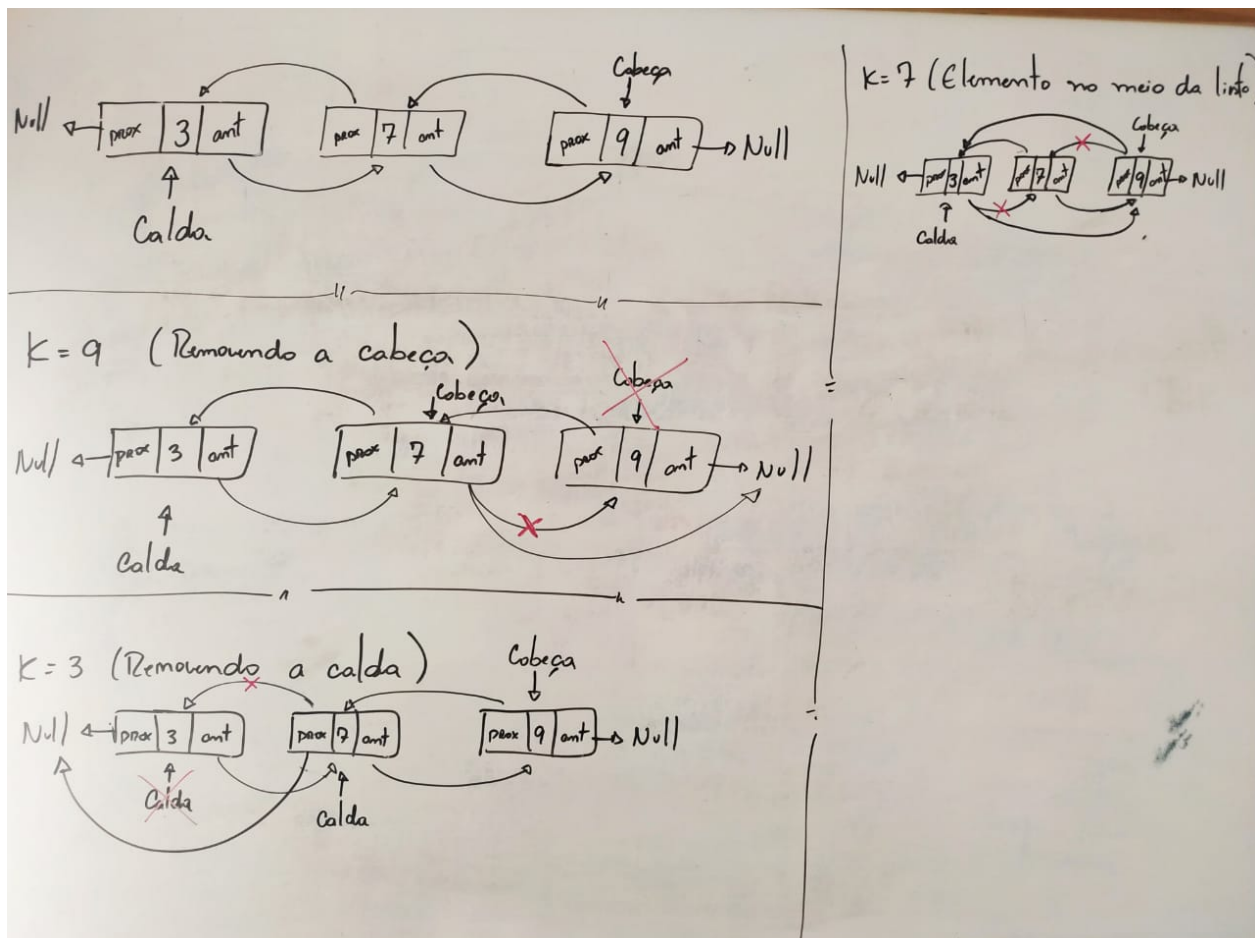 Cabeça
Null prox 3 ant prox 7 ant prox 9 ant Null
Calda
K = 9 (Removendo a cabeça)
Cabeça Cabeça
Null prox 3 ant prox 7 ant prox 9 ant Null
Calda
K = 3 (Removendo a calda) Cabeça
Null prox 3 ant prox 7 ant prox 9 ant Null
Calda Calda
K= 7 (Elemento no meio da lista)
Cabeça
Null prox 3 ant 7 ant 9 ant Null
Calda